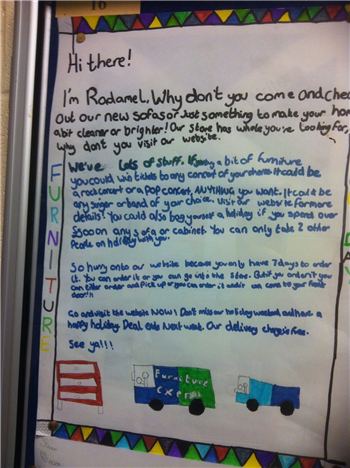 16
Hi there!
I'm Radamel. Why don't you come and chec
out our new sofas or just something to make your hom
a bit cleaner or brighter! Our store has what you're looking for,
why don't you visit our website.
We've lots of stuff. If buy a bit of furniture
you could win tickets to any concert of your choice. It could be
a rock concert or a pop concert, ANYTHING you want. It could be
any singer or band of your choice. Visit our website for more
details! You could also bag yourself a holiday if you spend over
£5000 on any sofa or cabinet. You can only take 2 other
people on holiday with you.
So hurry onto our website because you only have 7 days to order
it. You can order it or you can go into the store. But if you order it you
can either order and pick up or you can order it and it will come to your front
door!!!
Go and visit the website NOW! Don't miss our holiday weekend and have a
happy holiday. Deal ends next week. Our delivery charge is free.
See ya!!!
FURNITURE
Furniture